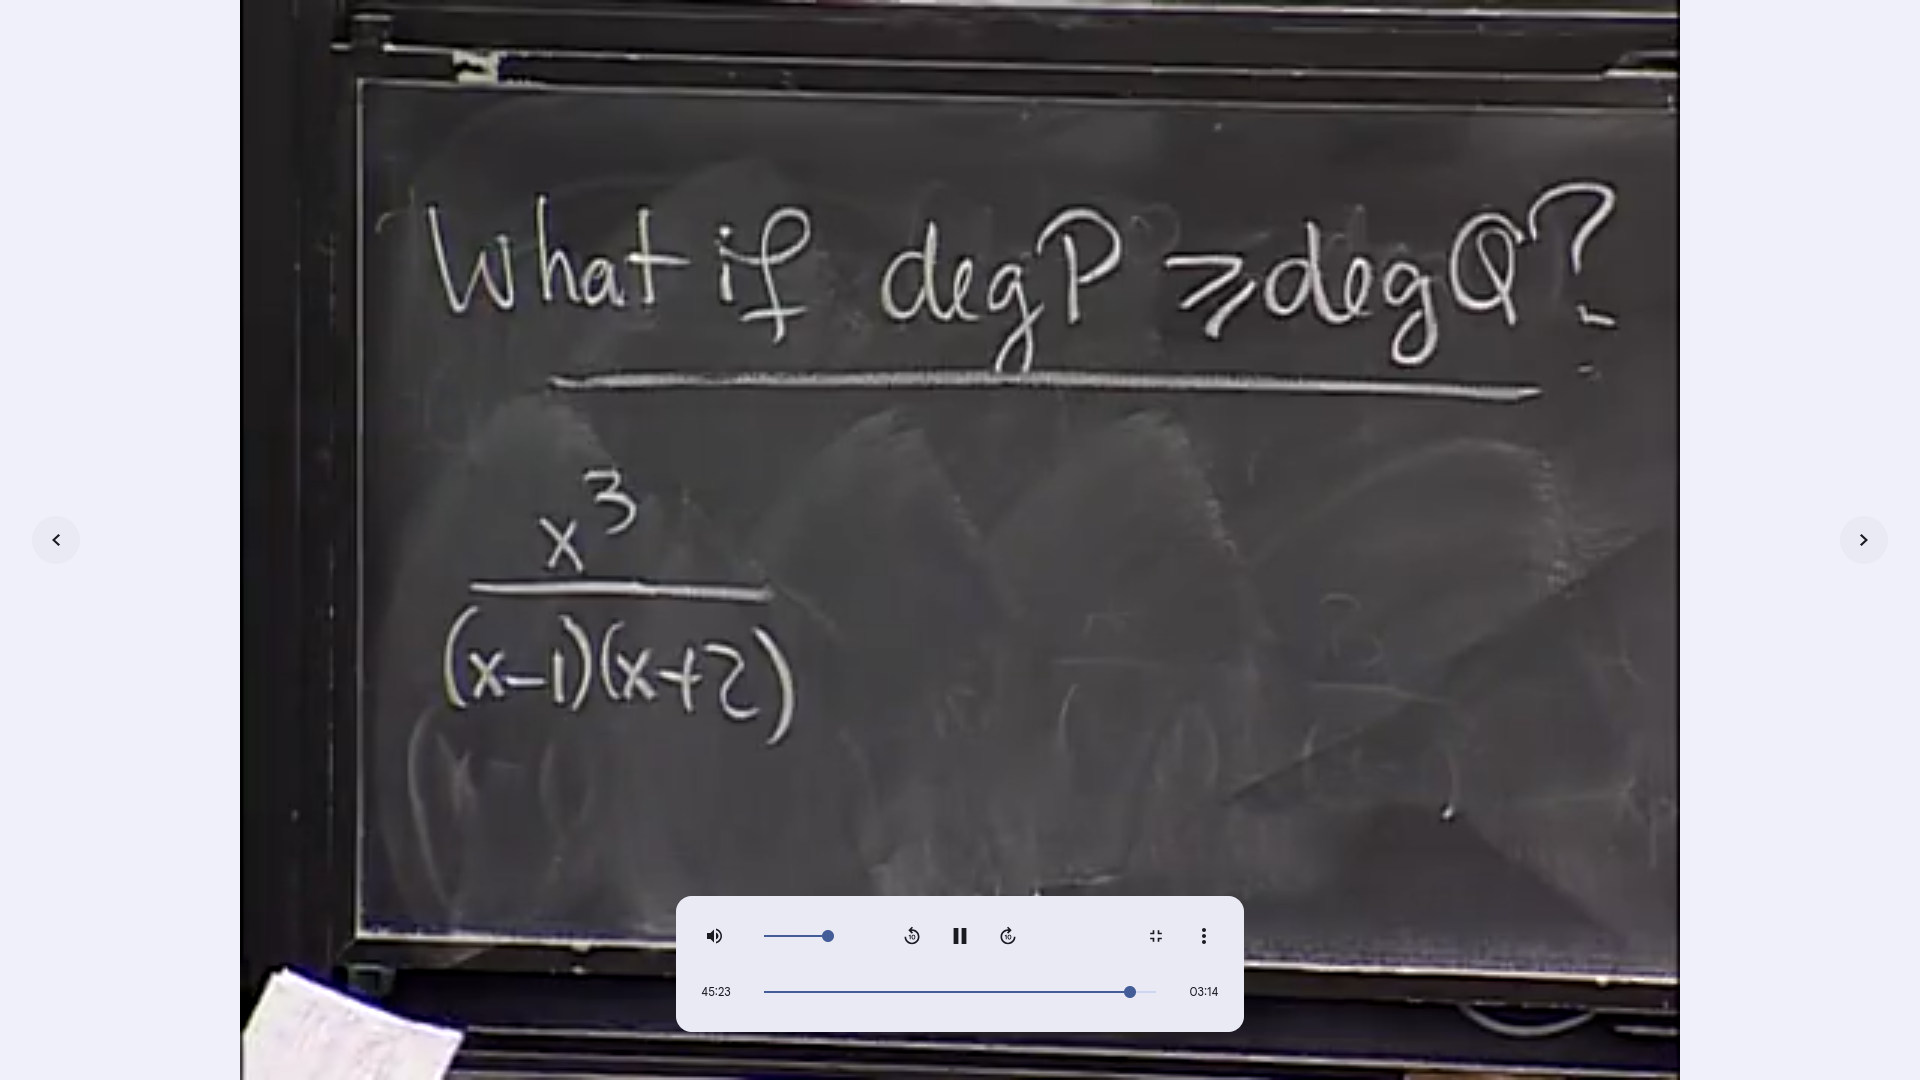 What if deg P ⩾ deg Q?
x³
(x-1)(x+2)
45:23
03:14